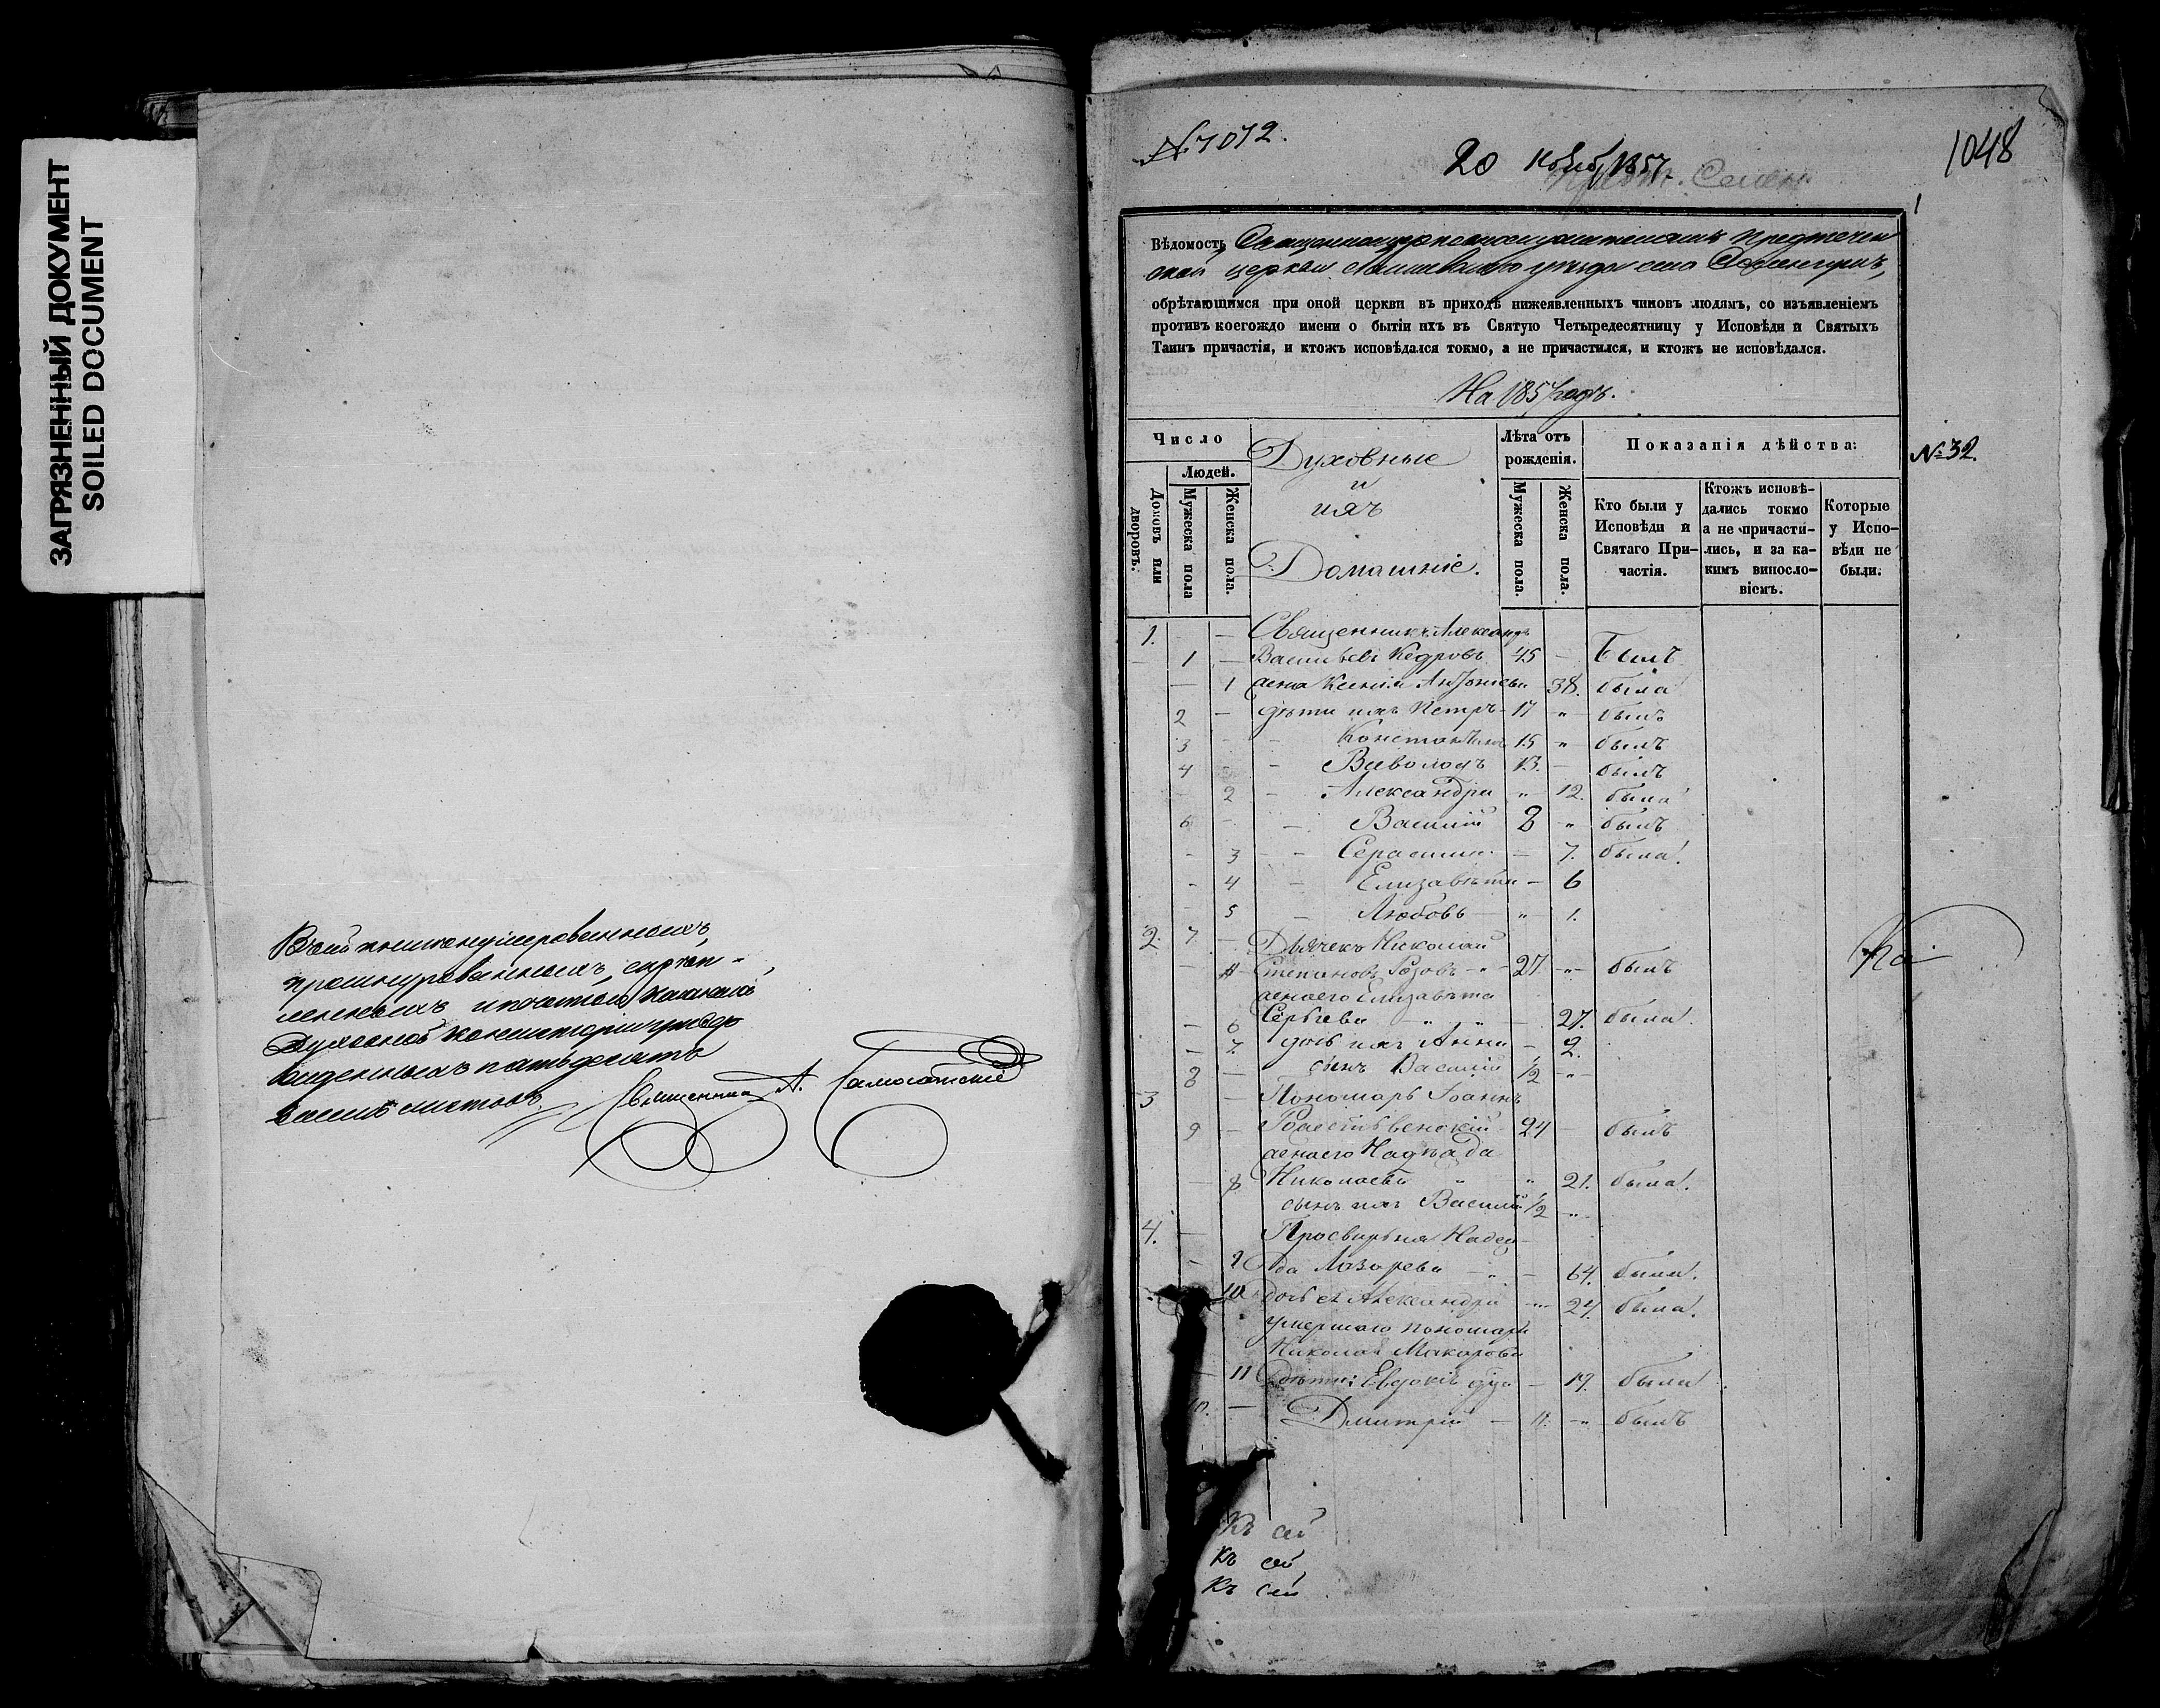 ЗАГРЯЗНЕННЫЙ ДОКУМЕНТ
SOILED DOCUMENT
Въ сей книге нумерованныхъ,
прошнурованныхъ, скреп-
ленныхъ и печатью Казанской
Духовной Консисторіи утвер
жденныхъ пятьдесятъ
листовъ.
Священникъ А. Самосатскій
№ 1012.
20 Нояб. 1857.
1048
1
Вѣдомость Священноцерковнослужителямъ Предтечен
ской церкви Лаишевскаго уѣзда села
обрѣтающимся при оной церкви въ приходѣ нижеявленныхъ чиновъ людямъ, со изъявленіемъ
противъ коегождо имени о бытіи ихъ въ Святую Четыредесятницу у Исповѣди и Святыхъ
Таинъ причастія, и ктожъ исповѣдался токмо, а не причастился, и ктожъ не исповѣдался.
На 1857 годъ.
№ 32.
Число
Людей.
Домовъ или дворовъ.
Мужеска пола
Женска пола.
Духовные
и
ихъ
Домашніе.
Лѣта отъ рожденія.
Мужеска пола.
Женска пола.
Показанія дѣйства:
Кто были у Исповѣди и Святаго При-частія.
Ктожъ исповѣ-дались токмо а не причасти-лись, и за ка-кимъ виносло-віемъ.
Которые у Испо-вѣди не были.
1. - - Священникъ Александръ
1 - Васильевъ Кедровъ 45 - Былъ
- 1 жена Ксенія 38. была
2 - дѣти ихъ Петръ - 17 " былъ
3 - - Константинъ 15 " былъ
4 - - Всеволодъ 13. - былъ
- 2 - Александра " 12. была
6 - - Василій 8 " былъ
- 3 - - Серафима - 7. была.
- 4 - Елизавѣта - 6
- 5 - Любовь " 1.
2. 7. - Дьячекъ Николай
Степановъ Розовъ - " - 27. " былъ
жена его Елизавѣта
- 6 Сергѣева " " - 27. была.
- 7. дочь ихъ Анна - 2.
8 - сынъ Василій 1/2 - " -
3 - Пономарь Іоаннъ
9 - Рождественскій 24 - былъ
жена его Надежда
- 8 Николаева " " 21. была.
сынъ ихъ Василій 1/2 "
4. - Просвирня Надеж
- 9 да Лазарева - " - 64. была.
- 10 дочь ея Александра 24. была.
умершаго пономаря
Николая Макарова
- 11 дѣти: Евдокія - 19. была
10. - Дмитрій - 11. - " былъ
Къ сей
Къ сей
Къ сей